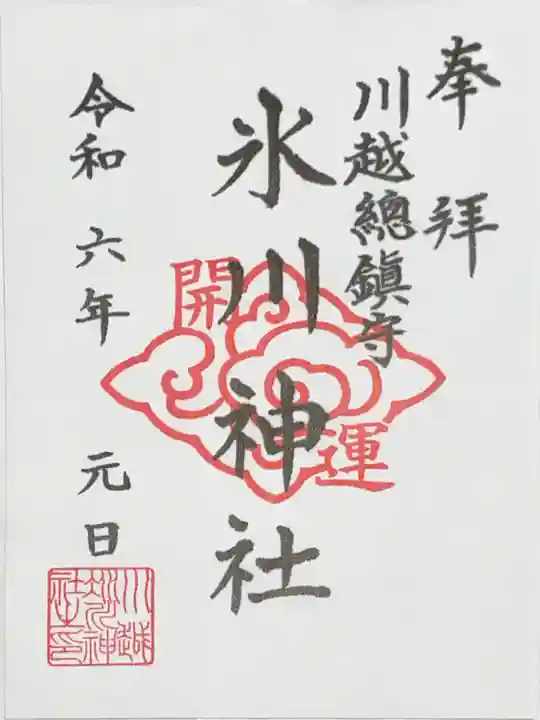 奉拜
川越總鎮守
氷川神社
開運
令和六年 元日
川越
氷川神
社之印